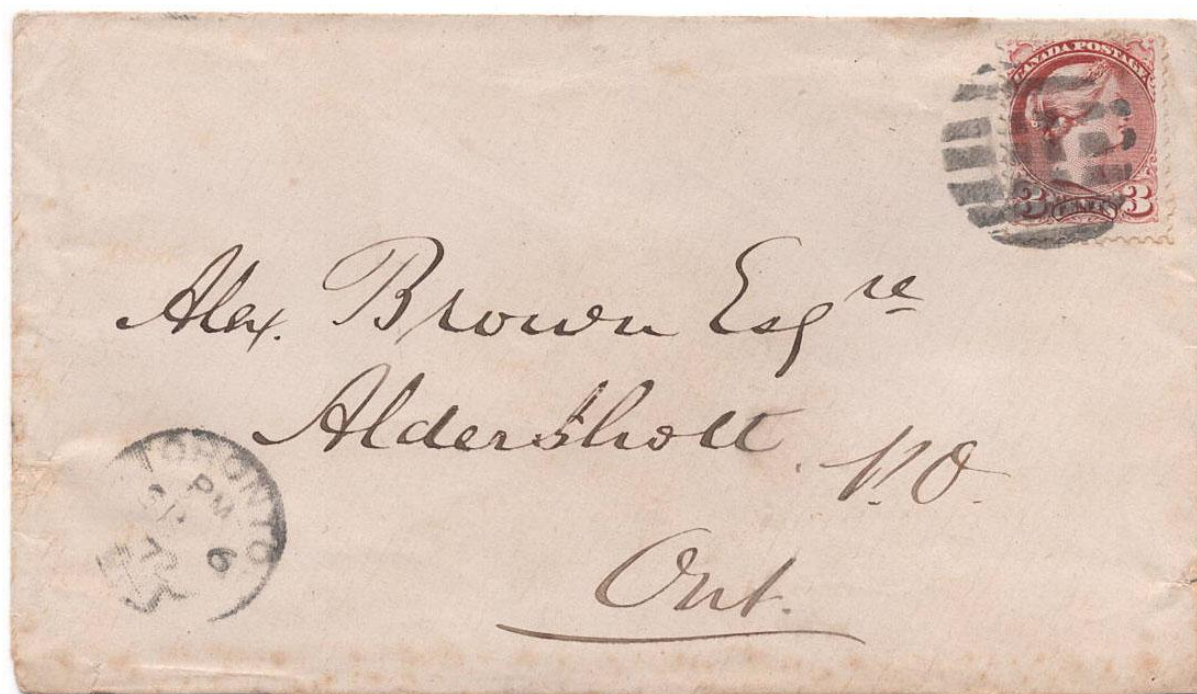 CANADA POSTAGE
3 CENTS 3
Alex. Brown Esqre
Aldershott P.O.
Ont.
TORONTO
PM
6